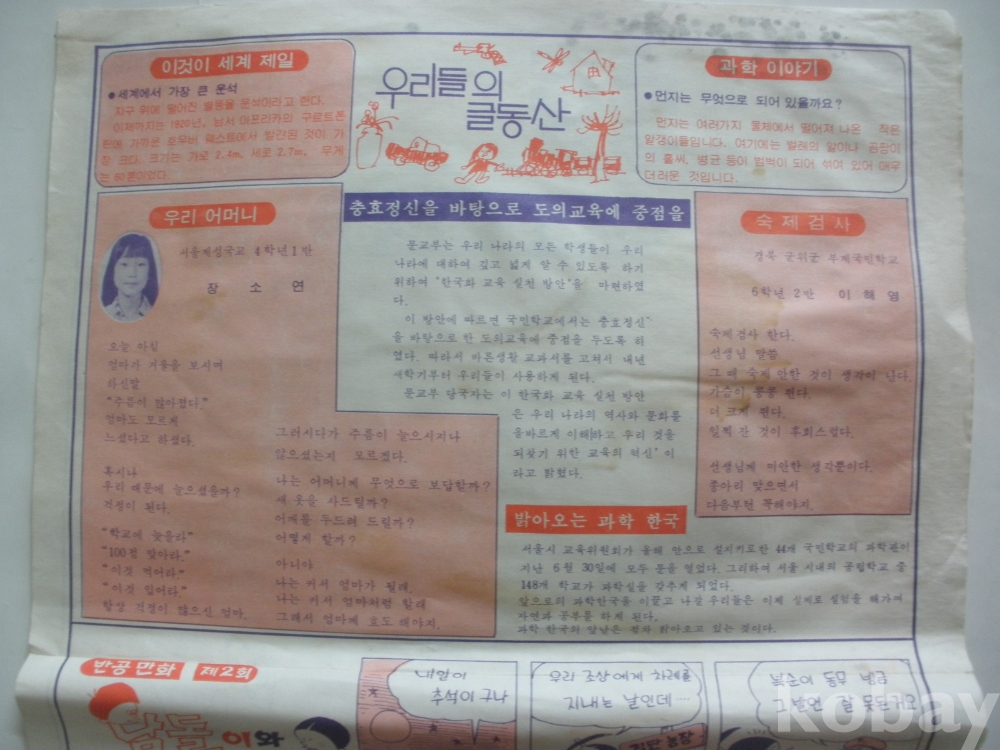 이것이 세계 제일
●세계에서 가장 큰 운석
지구 위에 떨어진 별똥을 운석이라고 한다.
이제까지는 1920년, 남서 아프리카의 구르트폰
테에 가까운 호우바 웨스트에서 발견된 것이 가
장 크다. 크기는 가로 2.4m, 세로 2.7m, 무게
는 60톤이었다.
우리들의
글동산
과학 이야기
●먼지는 무엇으로 되어 있을까요?
먼지는 여러가지 물체에서 떨어져 나온 작은
알갱이들입니다. 여기에는 벌레의 알이나 곰팡이
의 홀씨, 병균 등이 범벅이 되어 섞여 있어 매우
더러운 것입니다.
우리 어머니
서울 국교 4학년 1반
장 소 연
오늘 아침
엄마가 거울을 보시며
하신말
"주름이 많아졌다."
엄마도 모르게
느셨다고 하셨다.
혹시나
우리 때문에 늘으셨을까?
걱정이 된다.
"학교에 늦을라"
"100점 맞아라."
"이것 먹어라."
"이것 입어라."
항상 걱정이 많으신 엄마.
그러시다가 주름이 늘으시지나
않으셨는지 모르겠다.
나는 어머니께 무엇으로 보답할까?
새 옷을 사드릴까?
어깨를 두드려 드릴까?
어떻게 할까?
아니야
나는 커서 엄마가 될래.
나는 커서 엄마처럼 할래
그래서 엄마께 효도 해야지.
충효정신을 바탕으로 도의교육에 중점을
문교부는 우리 나라의 모든 학생들이 우리
나라에 대하여 깊고 넓게 알 수 있도록 하기
위하여 '한국화 교육 실천 방안'을 마련하였
다.
이 방안에 따르면 국민학교에서는 충효정신
을 바탕으로 한 도의교육에 중점을 두도록 하
였다. 따라서 바른생활 교과서를 고쳐서 내년
새학기부터 우리들이 사용하게 된다.
문교부 당국자는 이 한국화 교육 실천 방안
은 우리 나라의 역사와 문화를
올바르게 이해하고 우리 것을
되찾기 위한 교육의 혁신' 이
라고 밝혔다.
숙제검사
경북 군위군 부계국민학교
6학년 2반 이 해 영
숙제검사 한다.
선생님 말씀
그 때 숙제 안한 것이 생각이 난다.
가슴이 콩콩 뛴다.
더 크게 뛴다.
일찍 잔 것이 후회스럽다.
선생님께 미안한 생각뿐이다.
종아리 맞으면서
다음부턴 꼭해야지.
밝아오는 과학 한국
서울시 교육위원회가 올해 안으로 설치키로한 44개 국민학교의 과학관이
지난 6월 30일에 모두 문을 열었다. 그리하여 서울 시내의 공립학교 중
148개 학교가 과학실을 갖추게 되었다.
앞으로의 과학한국을 이끌고 나갈 우리들은 이제 실제로 실험을 해가며
자연과 공부를 하게 된다.
과학 한국의 앞날은 점차 밝아오고 있는 것이다.
반공 만화 제2회
내일이
추석이구나
우리 조상에게 차례를
지내는 날인데…
복순이 동무
그 발언 잘못된거요
이와
kobay